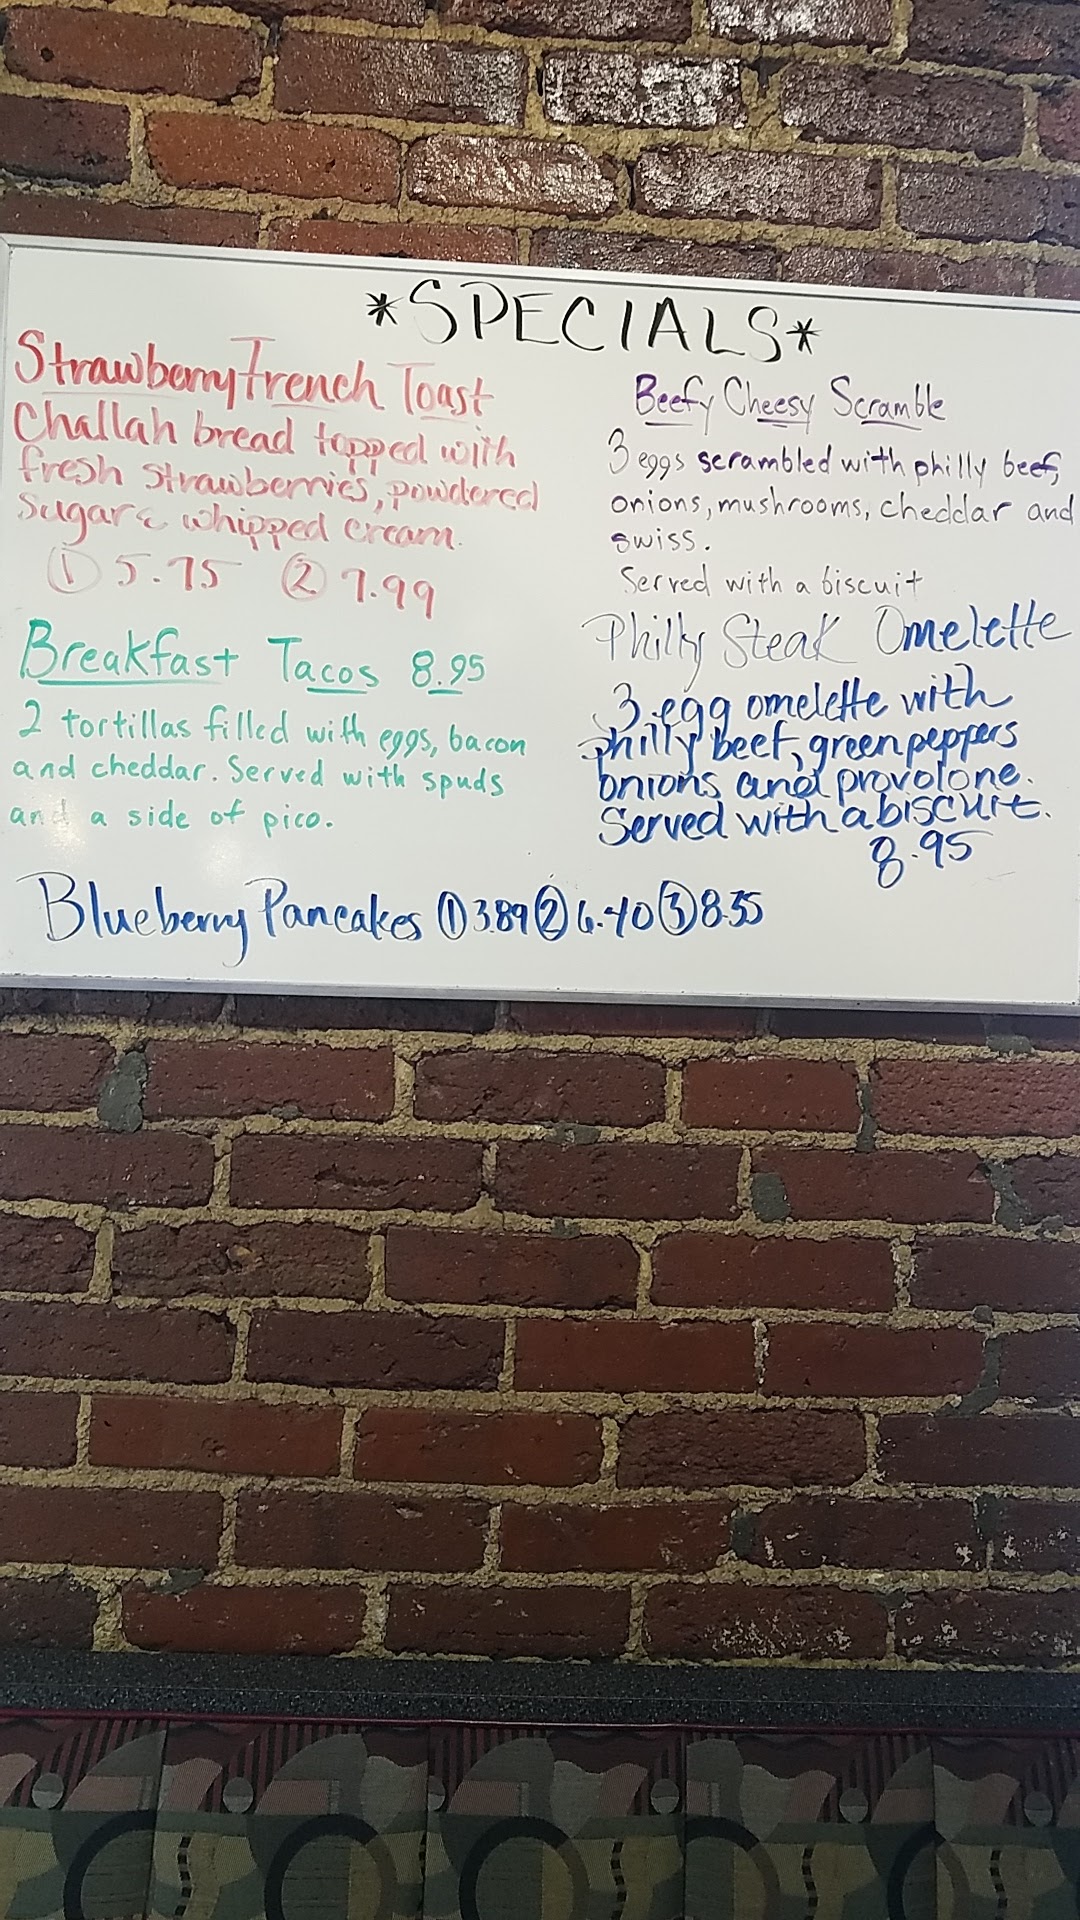 *SPECIALS*
Strawberry French Toast
Challah bread topped with
fresh strawberries, powdered
Sugar & whipped cream.
① 5.75 ② 7.99
Breakfast Tacos 8.95
2 tortillas filled with eggs, bacon
and cheddar. Served with spuds
and a side of pico.
Beefy Cheesy Scramble
3 eggs scrambled with philly beef,
onions, mushrooms, cheddar and
swiss.
Served with a biscuit
Philly Steak Omelette
3 egg omelette with
philly beef, green peppers
onions and provolone.
Served with a biscuit.
8.95
Blueberry Pancakes ① 3.89 ② 6.40 ③ 8.55